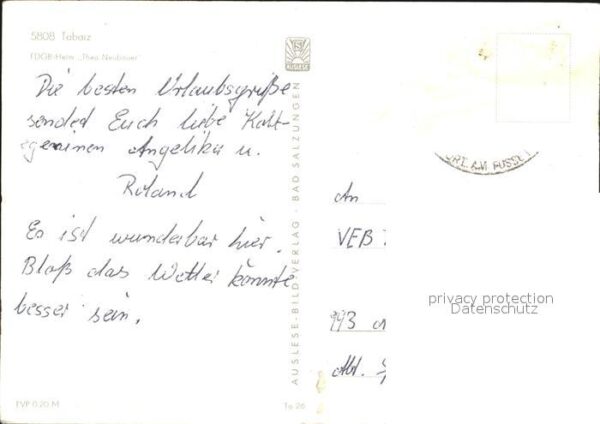 5808 Tabarz
FDGB-Heim „Theo Neubauer"
Die besten Urlaubsgrüße
sendet Euch liebe Kolle-
ginnen Angelika u.
Roland
Es ist wunderbar hier.
Bloß das Wetter könnte
besser sein.
EVP 0,20 M
AUSLESE-BILD-VERLAG · BAD SALZUNGEN
Ta 26
ORT AM FUSSE
An
VEB
993
Abt.
privacy protection
Datenschutz